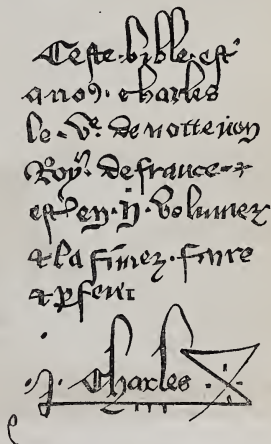 Ceste · bible · est
a nous · charles
le · Ve · de notre non
Roy · de france ·
est en · ij · volumez
et la fimez · faire
et pfere
· J · Charles ·